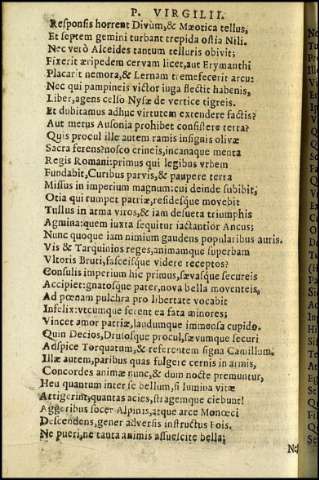 P. VIRGILII.
Responsis horrent Divûm,& Mæotica tellus,
Et septem gemini turbant trepida ostia Nili.
Nec verò Alceides tantum telluris obivit:
Fixerit æripedem cervam licet,aut Erymanthi
Placarit nemora,& Lernam tremefecerit arcu:
Nec qui pampineis victor iuga flectit habenis,
Liber,agens celso Nysæ de vertice tigreis.
Et dubitamus adhuc virtutem extendere factis?
Aut metus Ausonia prohibet consistere terra?
Quis procul ille autem ramis insignis olivæ
Sacra ferens?nosco crineis,incanaque menta
Regis Romani:primus qui legibus vrbem
Fundabit,Curibus parvis,& paupere terra
Missus in imperium magnum:cui deinde subibit,
Otia qui rumpet patriæ,residesque movebit
Tullus in arma viros,& iam desueta triumphis
Agmina:quem iuxta sequitur iactantior Ancus:
Nunc quoque iam nimium gaudens popularibus auris.
Vis & Tarquinios reges,animamque superbam
Vltoris Bruti,fascesique videre receptos?
Consulis imperium hic primus,sævasque secureis
Accipiet:gnatosque pater,nova bella moventeis,
Ad pœnam pulchra pro libertate vocabit
Infelix:vtcumque ferent ea fata minores;
Vincet amor patriæ,laudumque immensa cupido.
Quin Decios,Drusosque procul,sævumque securi
Adspice Torquatum,& referentem signa Camillum.
Illæ autem,paribus quas fulgere cernis in armis,
Concordes animæ nunc,& dum nocte premuntur,
Heu quantum inter se bellum,si lumina vitæ
Attigerint,quantas acies,stragemque ciebunt!
Aggeribus socer Alpinis,atque arce Monœci
Descendens,gener adversis instructus Eois.
Ne pueri,ne tanta animis assuescite bella;